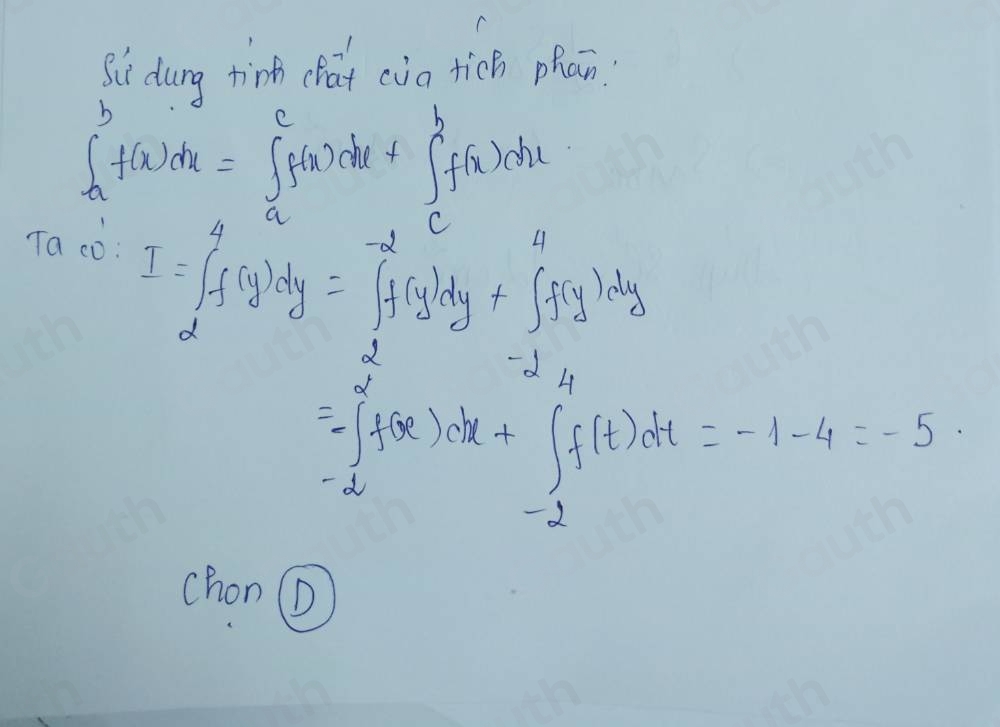 Sử dụng tính chất của tích phân:
∫_a^b f(x)dx = ∫_a^c f(x)dx + ∫_c^b f(x)dx.
Ta có: I = ∫_2^4 f(y)dy = ∫_2^{-2} f(y)dy + ∫_{-2}^4 f(y)dy
= -∫_{-2}^2 f(x)dx + ∫_{-2}^4 f(t)dt = -1-4 = -5.
Chọn D